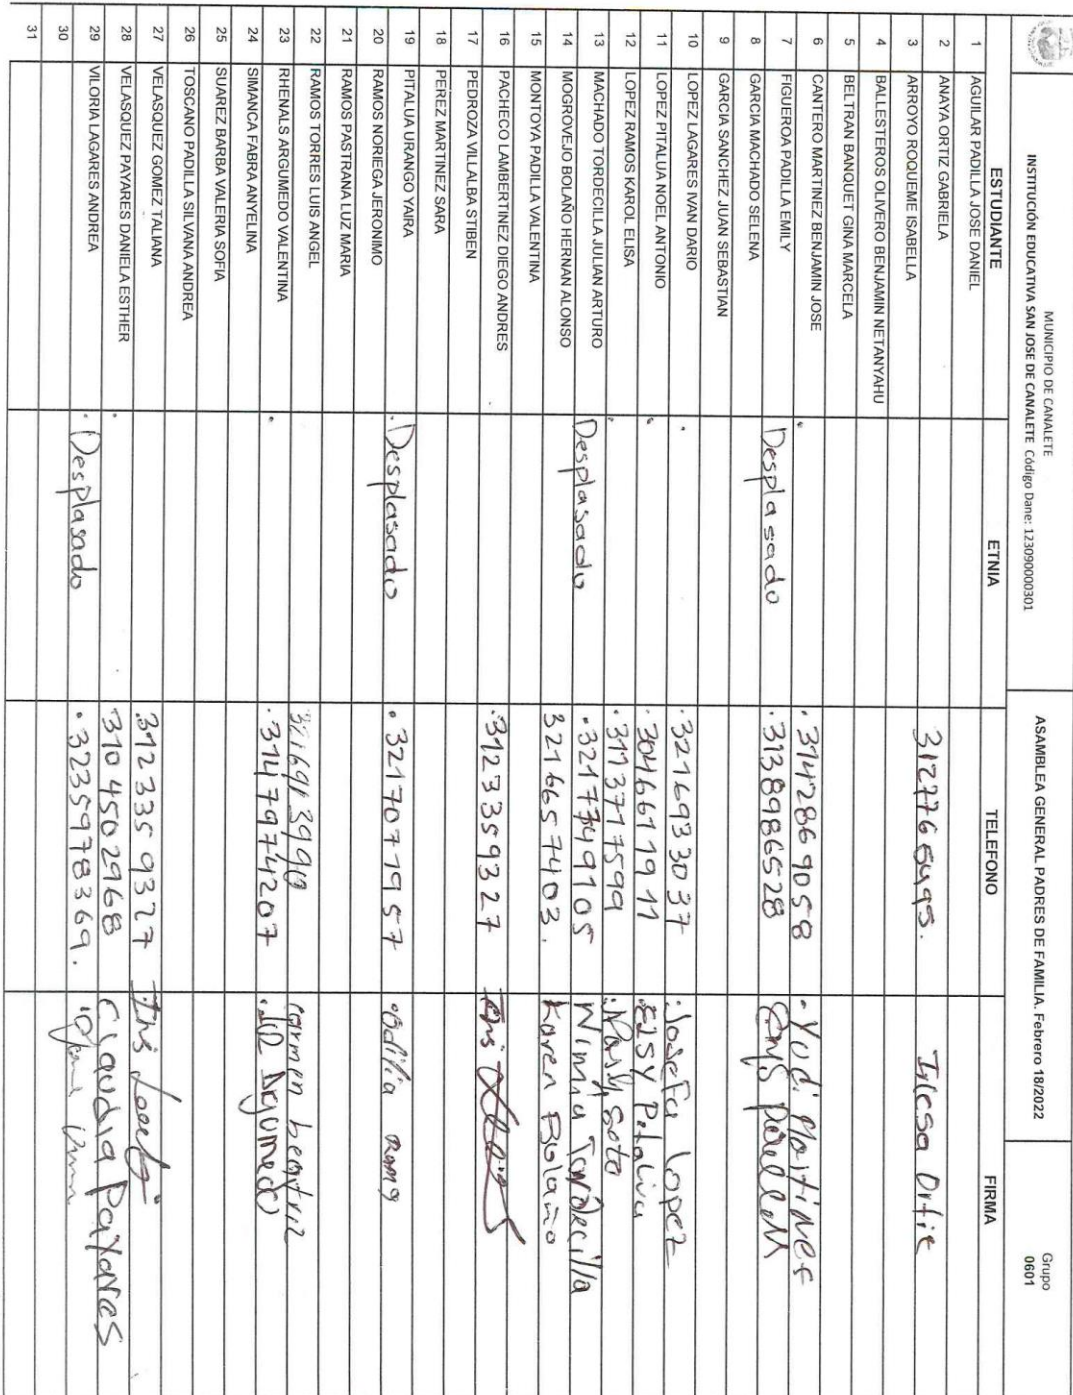 MUNICIPIO DE CANALETE
INSTITUCIÓN EDUCATIVA SAN JOSE DE CANALETE Código Dane: 123090000301
ASAMBLEA GENERAL PADRES DE FAMILIA. Febrero 18/2022
Grupo
0601
ESTUDIANTE ETNIA TELEFONO FIRMA
1 AGUILAR PADILLA JOSE DANIEL
2 ANAYA ORTIZ GABRIELA 3127766495. Ortiz
3 ARROYO ROQUEME ISABELLA
4 BALLESTEROS OLIVERO BENJAMIN NETANYAHU
5 BELTRAN BANQUET GINA MARCELA
6 CANTERO MARTINEZ BENJAMIN JOSE . 3142869058 . Yudi Martines
7 FIGUEROA PADILLA EMILY Desplasado . 3138986528
8 GARCIA MACHADO SELENA
9 GARCIA SANCHEZ JUAN SEBASTIAN
10 LOPEZ LAGARES IVAN DARIO . 3216933037 . Josefa Lopez
11 LOPEZ PITALUA NOEL ANTONIO . 3046611911 . Elsy Petalua
12 LOPEZ RAMOS KAROL ELISA . 3113717599 Soto
13 MACHADO TORDECILLA JULIAN ARTURO Desplasado . 3217749105 Nimia Tordecilla
14 MOGROVEJO BOLAÑO HERNAN ALONSO 3216657403. Karen Bolaño
15 MONTOYA PADILLA VALENTINA
16 PACHECO LAMBERTINEZ DIEGO ANDRES . 3123359327
17 PEDROZA VILLALBA STIBEN
18 PEREZ MARTINEZ SARA
19 PITALUA URANGO YAIRA . Desplasado . 3217071957 Odilia
20 RAMOS NORIEGA JERONIMO
21 RAMOS PASTRANA LUZ MARIA
22 RAMOS TORRES LUIS ANGEL carmen beatriz
23 RHENALS ARGUMEDO VALENTINA . 3147974207 Argumedo
24 SIMANCA FABRA ANYELINA
25 SUAREZ BARBA VALERIA SOFIA
26 TOSCANO PADILLA SILVANA ANDREA
27 VELASQUEZ GOMEZ TALIANA 3123359327
28 VELASQUEZ PAYARES DANIELA ESTHER 3104502968 Claudia Payares
29 VILORIA LAGARES ANDREA . Desplasado . 3235978369.
30
31